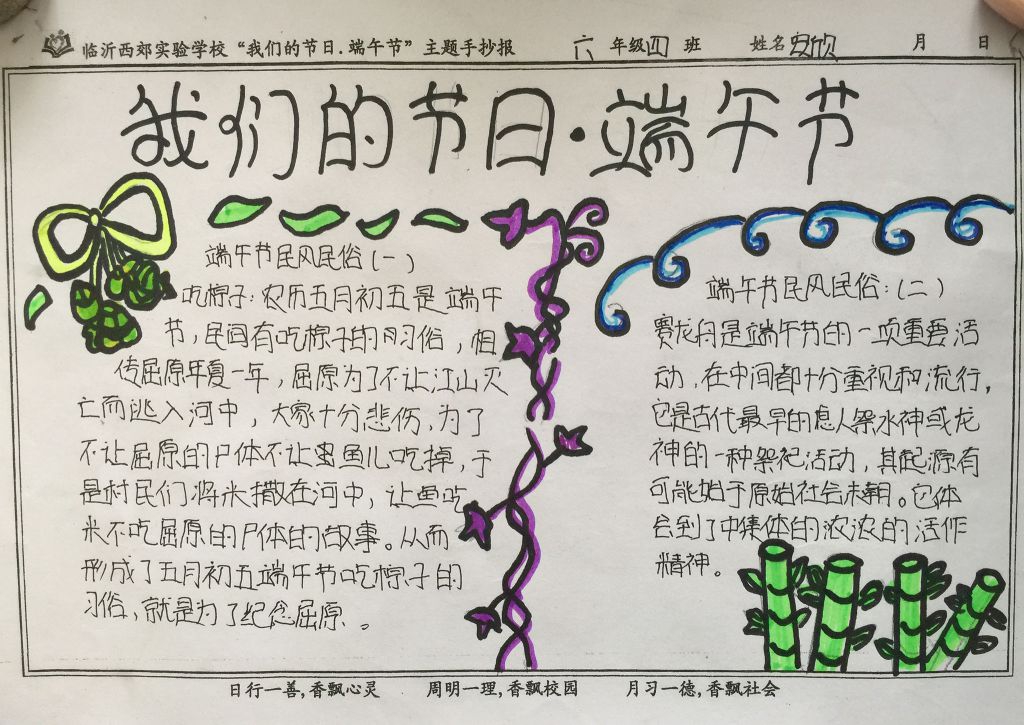 临沂西郊实验学校“我们的节日.端午节”主题手抄报 六 年级四 班 姓名安欣 月 日
我们的节日·端午节
端午节民风民俗(一)
吃粽子:农历五月初五是端午
节,民间有吃粽子的月习俗,相
传屈原年复一年,屈原为了不让江山灭
亡而逃入河中,大家十分悲伤,为了
不让屈原的尸体不让
鱼儿吃掉,于
是村民们将米撒在河中,让鱼吃
米不吃屈原的尸体的故事。从而
形成了五月初五端午节吃粽子的
习俗,就是为了纪念屈原。
端午节民风民俗:(二)
赛龙舟是端午节的一项重要活
动,在中间都十分重视和流行,
它是古代最早的
人祭水神或龙
神的一种祭祀活动,其起源有
可能始于原始社会末期。它体
会到了中集体的浓浓的活作
精神。
日行一善,香飘心灵 周明一理,香飘校园 月习一德,香飘社会